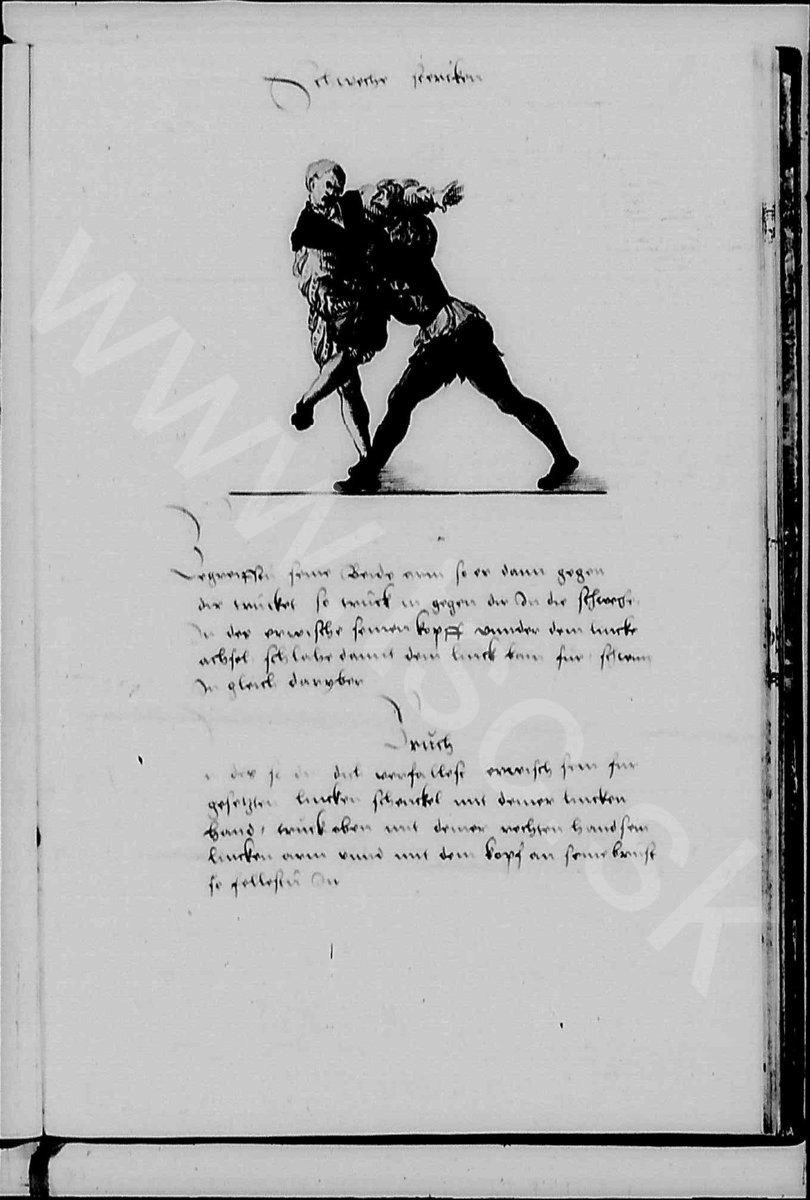 Schweche stercken
Begreiffen seine Beide arm so er dann gegen
dir trucket so truck in gegen dir In die schweche
In der erwische seinen kopff vnnder dem lincke
achsel schlahe damit dem linck bain fur
In gleich daryber
Bruch
In der so dich verfallest erwisch sein fur
gesetzten lincken schenckel mit deiner lincken
hand, truck oben mit deiner rechten hand sein
lincken arm vnnd mit dem kopf an seine brust
so fellestu In
www.sc.sk